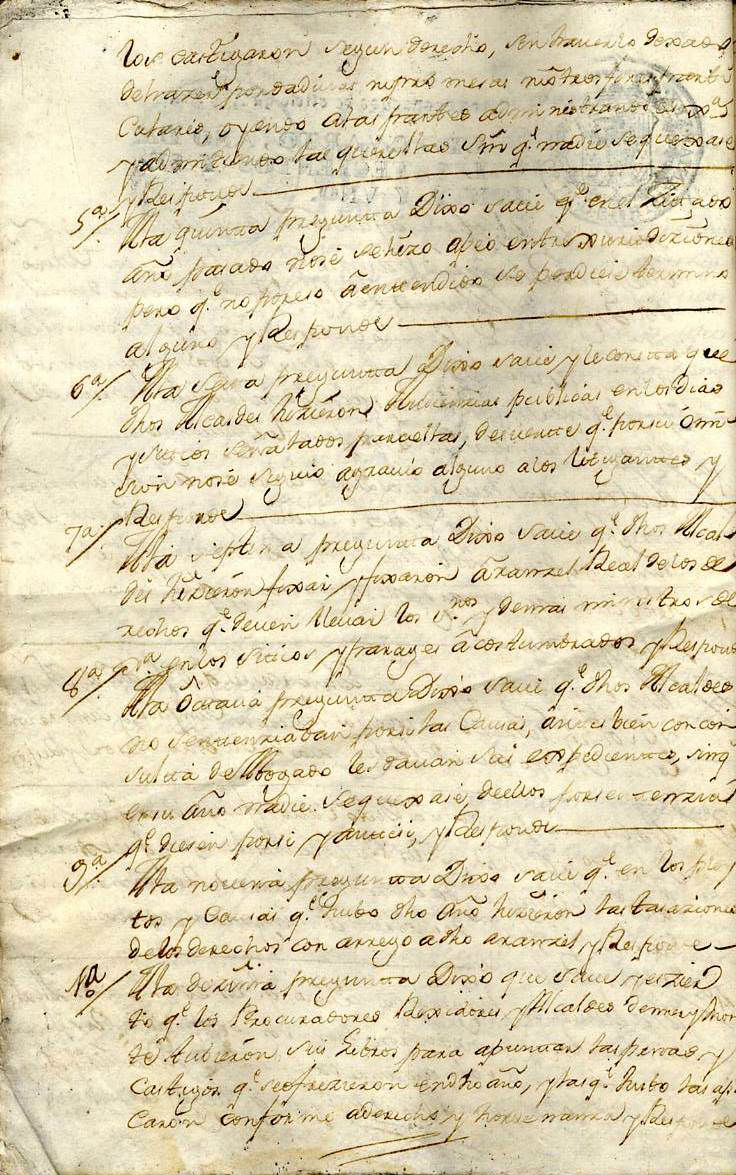 los castigaron segun derecho, sin haverlo dexado
de hazer por dadivas
oyendo a las partes administrando
y admitiendo las querellas sin q.e nadie se quexase
y Responde
5ª/. A la quinta pregunta Dixo save q.e en el zittado
año pasado no se hizo apeo entre xuridiziones
pero q.e no por eso a entendido se perdiese termino
alguno y Responde
6ª/. A la sexta pregunta Dixo save y le consta que
dhos Alcaldes hizieron Audiencias publicas en los dias
y sitios señalados para ellas, de suerte q.e por su omi
sion no se siguio agravio alguno a los litigantes y
Responde
7ª/. A la septima pregunta Dixo save q.e dhos Alcal
des hizieron fixar y fixaron Aranzel Real de los de
rechos q.e deven llevar los s.nos y demas ministros de
en los sitios y parages acostumbrados y Responde
8ª/. A la Octava pregunta Dixo save q.e dhos Alcaldes
no sentenziaban por si las Causas, antes bien con con
sulta de Abogado les davan sus expedientes, sin q.e
en su año nadie se quexase, de ellos por sentenzia
q.e diesen por si y ante si, y Responde
9ª/. A la novena pregunta Dixo save q.e en los pley
tos y Causas q.e hubo dho año hizieron las tasaziones
de los derechos con arreglo a dho aranzel y Responde
10ª/. A la dezima pregunta Dixo que save y es zier
to q.e los Procuradores Rexidores, y Alcaldes de mes y
te tubieron sus Libros para apuntar las penas y
Castigos q.e se ofrezieron en dho año, y las q.e hubo las apli
caron conforme a derecho y y Responde